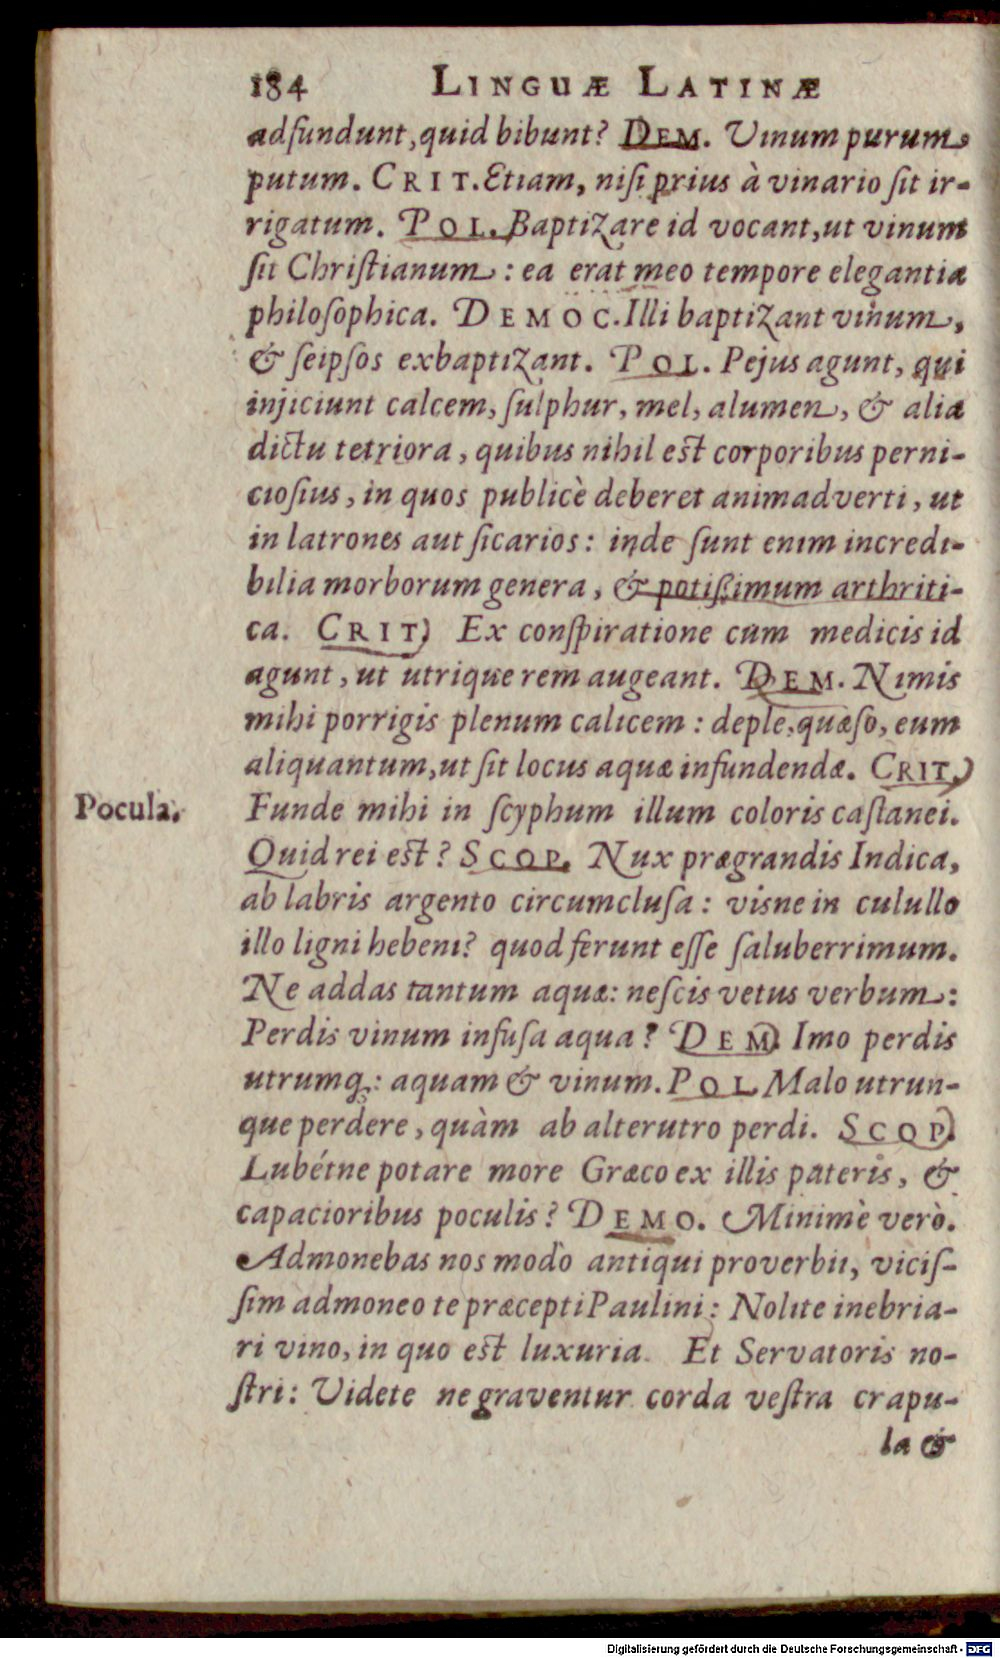 184 LINGUÆ LATINÆ
adfundunt, quid bibunt? DEM. Vinum purum
putum. CRIT. Etiam, niſi prius à vinario ſit ir-
rigatum. POL. Baptizare id vocant, ut vinum
ſit Chriſtianum: ea erat meo tempore elegantia
philoſophica. DEMOC. Illi baptizant vinum,
& ſeipſos exbaptizant. POL. Pejus agunt, qui
injiciunt calcem, ſulphur, mel, alumen, & alia
dictu tetriora, quibus nihil eſt corporibus perni-
cioſius, in quos publicè deberet animadverti, ut
in latrones aut ſicarios: inde ſunt enim incredi-
bilia morborum genera, & potiſſimum arthriti-
ca. CRIT. Ex conſpiratione cum medicis id
agunt, ut utrique rem augeant. DEM. Nimis
mihi porrigis plenum calicem: deple, quæſo, eum
aliquantum, ut ſit locus aquæ infundendæ. CRIT.
Pocula. Funde mihi in ſcyphum illum coloris caſtanei.
Quid rei eſt? SCOP. Nux prægrandis Indica,
ab labris argento circumcluſa: viſne in culullo
illo ligni hebeni? quod ferunt eſſe ſaluberrimum.
Ne addas tantum aquæ: neſcis vetus verbum:
Perdis vinum infuſa aqua? DEM. Imo perdis
utrumq;: aquam & vinum. POL. Malo utrun-
que perdere, quàm ab alterutro perdi. SCOP.
Lubétne potare more Græco ex illis pateris, &
capacioribus poculis? DEMO. Minimè verò.
Admonebas nos modò antiqui proverbii, viciſ-
ſim admoneo te præcepti Paulini: Nolite inebria-
ri vino, in quo eſt luxuria. Et Servatoris no-
ſtri: Videte ne graventur corda veſtra crapu-
la &
Digitalisierung gefördert durch die Deutsche Forschungsgemeinschaft - DFG